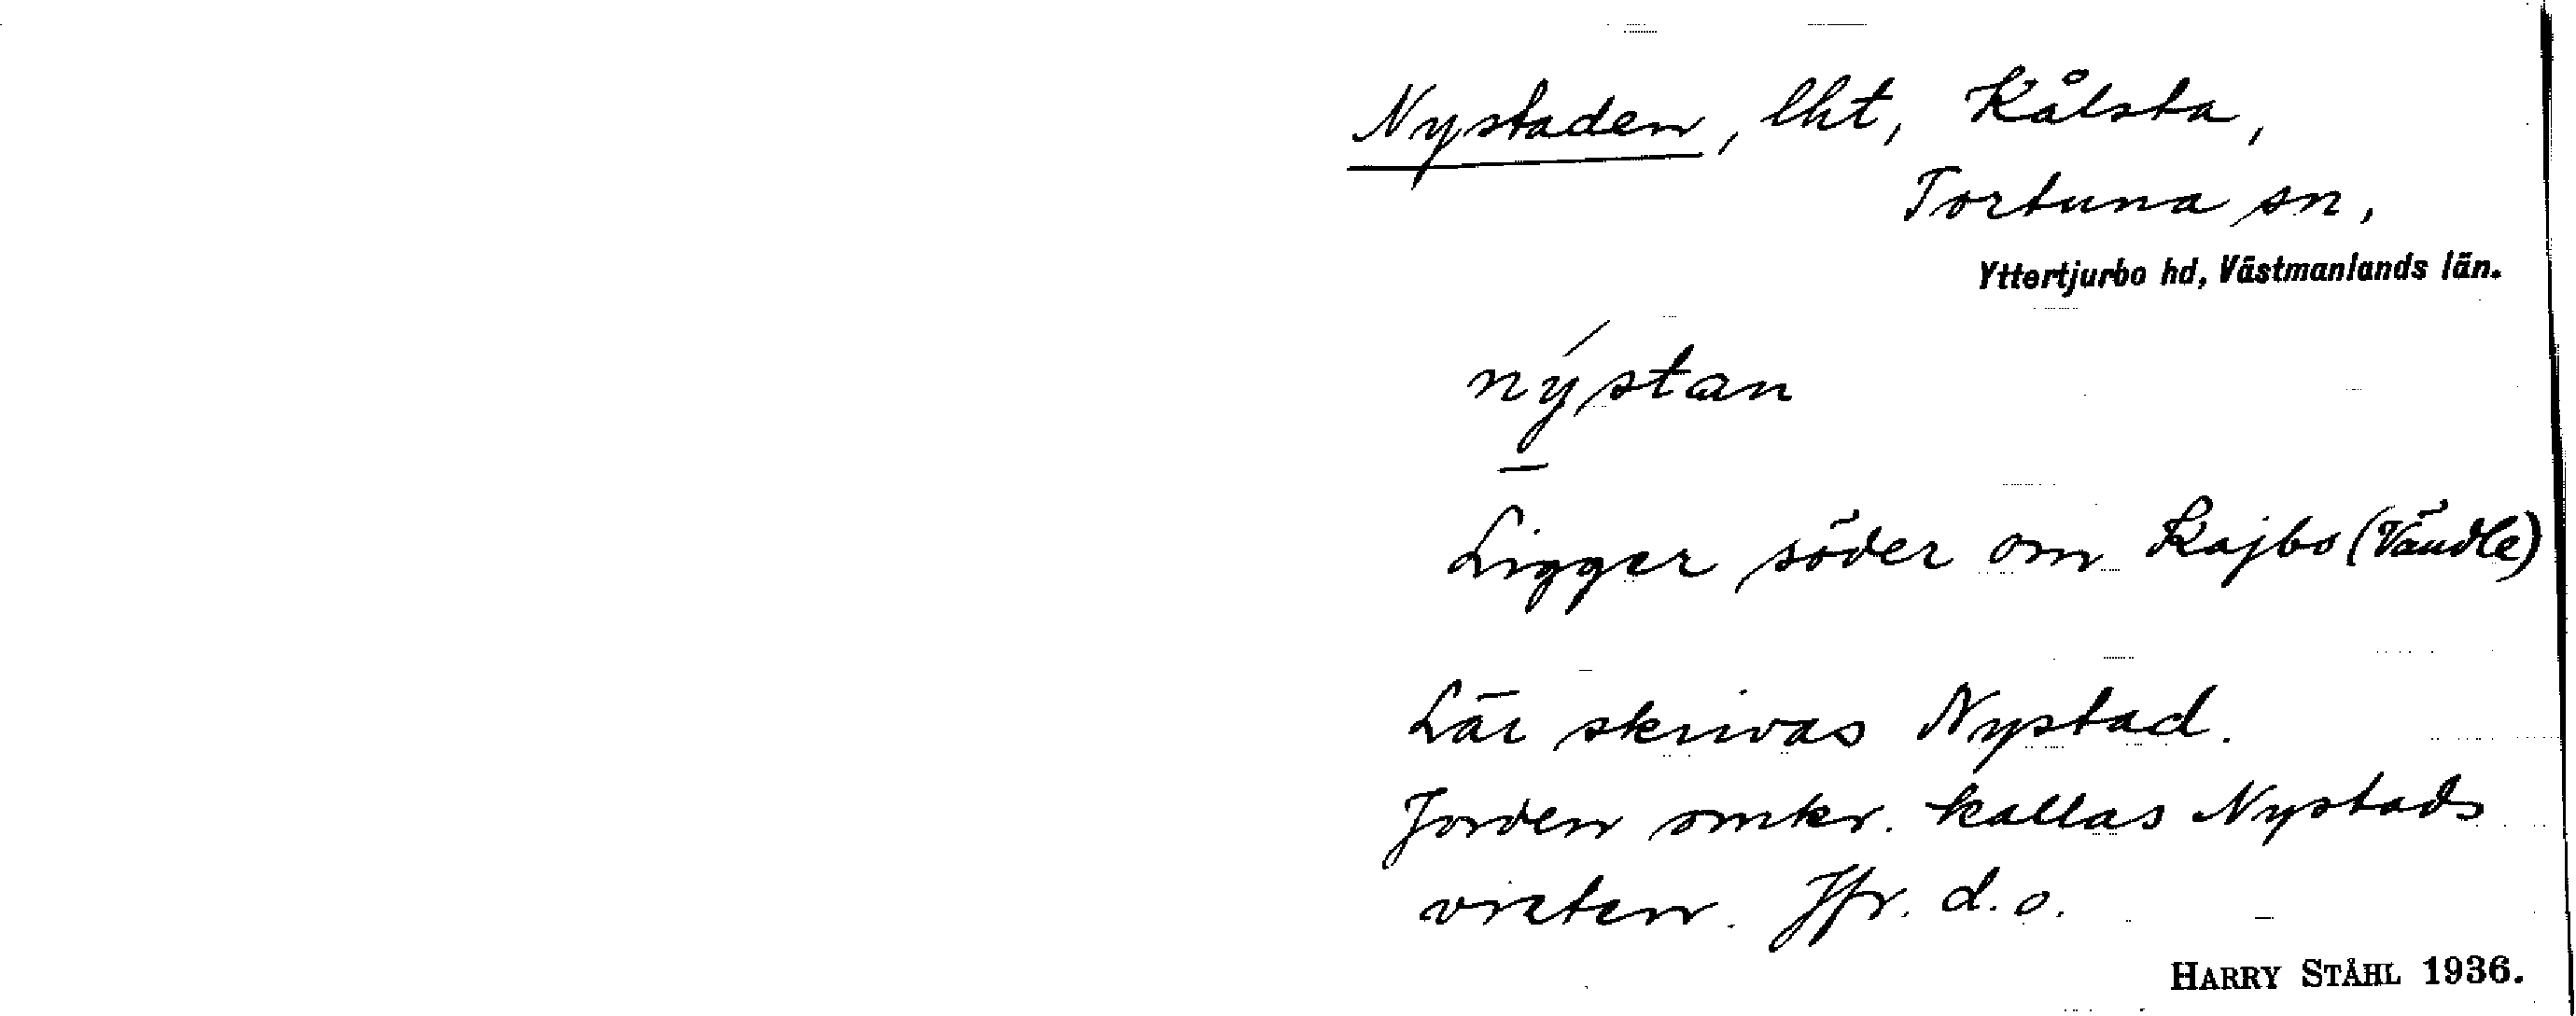 Nystaden, lht, Kålsta,
Tortuna sn,
Yttertjurbo hd, Västmanlands län.
nýstan
Ligger söder om Kajbo (Vändle)
Lär skrivas Nystad.
Jorden omkr. kallas Nystads
vreten. Jfr. d.o.
HARRY STÅHL 1936.